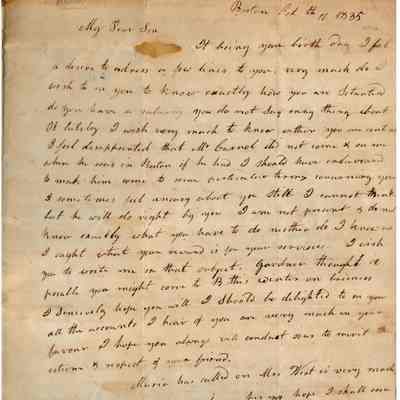 Boston Feb th 11 1835
My Dear Son
It being your birth day I feel
a desire to adress a few lines to you, very much do I
wish to you to know exactly how you are situated
do you have a salary you do not say any thing about
it lately I wish very much to know wether you are
I feel disappointed that Mr did not come & see me
when he was in Boston if he had I should have endeavoured
to make him come to some particular terms concerning you
I sometimes feel uneasy about you still I cannot think
but he will do right by you I am not present & do not
know exactly what you have to do neither do I know as
I ought what your reward is for your services. I wish
you to write me on that subject. Gardner thought it
posible you might come to B this winter on buisness
I sincerely hope you will I should be delighted to see you
all the accounts I hear of you are very much in your
favour I hope you always will conduct so as to merit the
esteem & respect of your friend.
Maria has called on Mrs West is very much
hope I shall soon